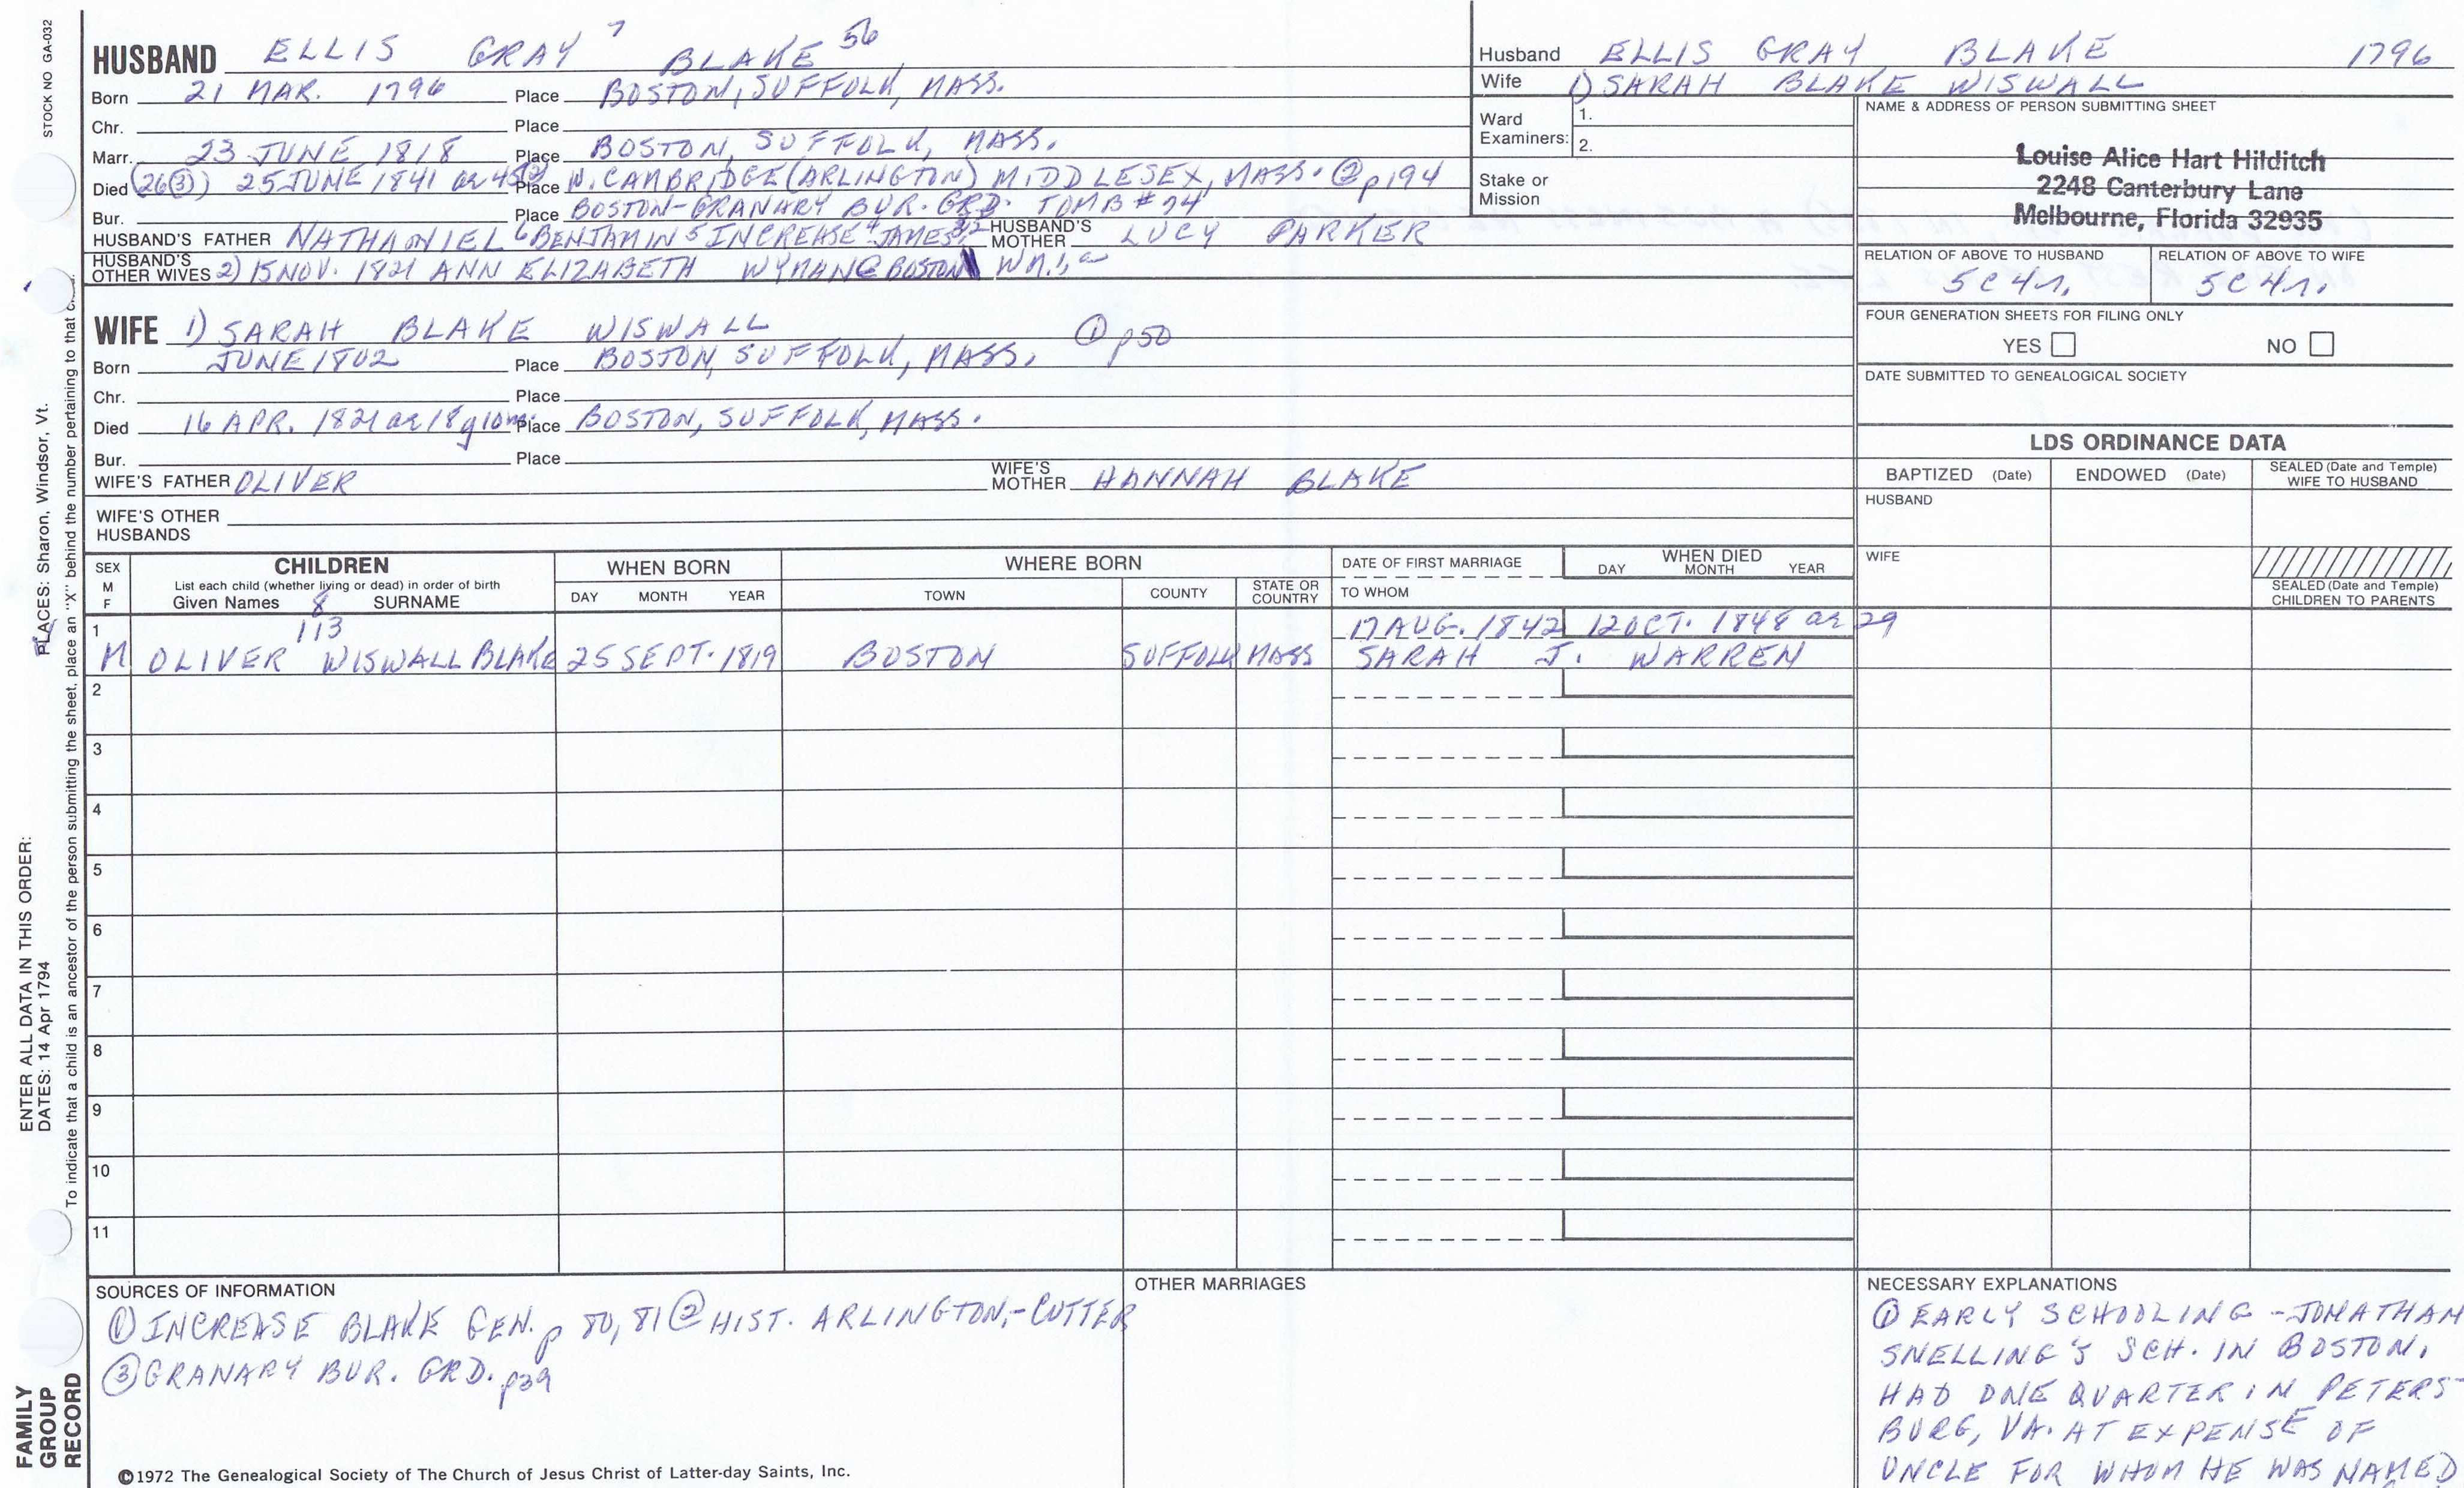 STOCK NO GA-032
HUSBAND ELLIS GRAY 7 BLAKE 56
Born 21 MAR. 1796 Place BOSTON, SUFFOLK, MASS.
Chr. Place
Marr. 23 JUNE 1818 Place BOSTON, SUFFOLK, MASS.
Died (26③) 25 JUNE 1841 ae 45② Place W. CAMBRIDGE (ARLINGTON) MIDDLESEX, MASS. ② p194
Bur. Place BOSTON-GRANARY BUR. GRD. TOMB #74
HUSBAND'S FATHER NATHANIEL 6 BENJAMIN 5 INCREASE 4 JAMES 3,2 HUSBAND'S MOTHER LUCY PARKER
HUSBAND'S OTHER WIVES 2) 15 NOV. 1821 ANN ELIZABETH WYMAN @ BOSTON Wm.1,a
Husband ELLIS GRAY BLAKE 1796
Wife 1) SARAH BLAKE WISWALL
Ward Examiners: 1.
2.
Stake or Mission
NAME & ADDRESS OF PERSON SUBMITTING SHEET
Louise Alice Hart Hilditch
2248 Canterbury Lane
Melbourne, Florida 32935
RELATION OF ABOVE TO HUSBAND RELATION OF ABOVE TO WIFE
5C4r. 5C4r.
FOUR GENERATION SHEETS FOR FILING ONLY
YES NO
DATE SUBMITTED TO GENEALOGICAL SOCIETY
WIFE 1) SARAH BLAKE WISWALL ① p50
Born JUNE 1802 Place BOSTON, SUFFOLK, MASS.
Chr. Place
Died 16 APR. 1821 ae 18y 10m. Place BOSTON, SUFFOLK, MASS.
Bur. Place
WIFE'S FATHER OLIVER WIFE'S MOTHER HANNAH BLAKE
WIFE'S OTHER HUSBANDS
LDS ORDINANCE DATA
BAPTIZED (Date) ENDOWED (Date) SEALED (Date and Temple) WIFE TO HUSBAND
HUSBAND
WIFE
SEALED (Date and Temple) CHILDREN TO PARENTS
SEX M F CHILDREN WHEN BORN WHERE BORN DATE OF FIRST MARRIAGE WHEN DIED
List each child (whether living or dead) in order of birth
Given Names 8 SURNAME DAY MONTH YEAR TOWN COUNTY STATE OR COUNTRY TO WHOM DAY MONTH YEAR
1 113 17 AUG. 1842 12 OCT. 1848 ae 29
M OLIVER WISWALL BLAKE 25 SEPT. 1819 BOSTON SUFFOLK MASS SARAH J. WARREN
2
3
4
5
6
7
8
9
10
11
SOURCES OF INFORMATION
① INCREASE BLAKE GEN. p 80, 81 ② HIST. ARLINGTON,-CUTTER
③ GRANARY BUR. GRD. p39
OTHER MARRIAGES
NECESSARY EXPLANATIONS
① EARLY SCHOOLING - JONATHAN
SNELLING'S SCH. IN BOSTON.
HAD ONE QUARTER IN PETERS-
BURG, VA. AT EXPENSE OF
UNCLE FOR WHOM HE WAS NAMED
©1972 The Genealogical Society of The Church of Jesus Christ of Latter-day Saints, Inc.
FAMILY GROUP RECORD
ENTER ALL DATA IN THIS ORDER:
DATES: 14 Apr 1794 PLACES: Sharon, Windsor, Vt.
To indicate that a child is an ancestor of the person submitting the sheet, place an "X" behind the number pertaining to that